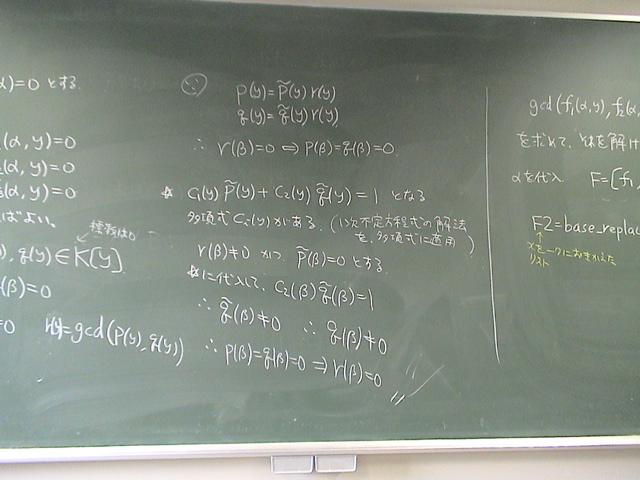 α)=0 とする.
(α,y)=0
(α,y)=0
(α,y)=0
ばよい.
標数は0
), q(y)∈K[y]
(β)=0
=0
r(y)=gcd(p(y), q(y))
∵
p(y)=p̃(y) r(y)
q(y)=q̃(y) r(y)
∴ r(β)=0 ⇔ p(β)=q(β)=0.
☆ C₁(y) p̃(y) + C₂(y) q̃(y) = 1 となる
多項式 Cᵢ(y) がある. (1次不定方程式の解法
を, 多項式に適用)
r(β)≠0 かつ p̃(β)=0 とする.
☆に代入して, C₂(β) q̃(β)=1
∴ q̃(β)≠0 ∴ q(β)≠0
∴ p(β)=q(β)=0 ⇒ r(β)=0
gcd(f₁(α,y), f₂(α,
を求めて, それを解け
αを代入 F=[f₁,
F2=base_replac
xをαにおきかえた
リスト